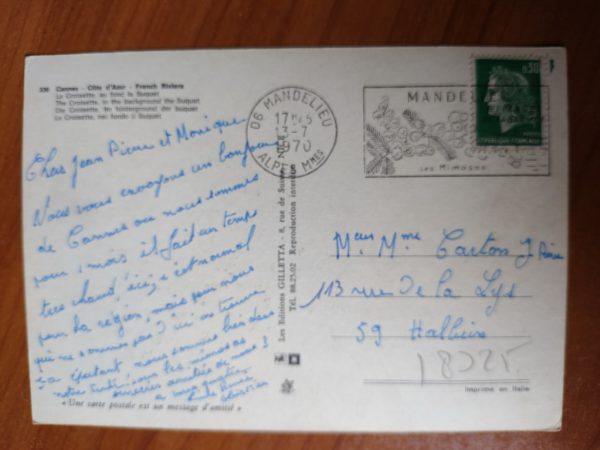 330 Cannes - Côte d'Azur - French Riviera
La Croisette, au fond le Suquet
The Croisette, in the background the Suquet
Die Croisette, im hintergrund der Suquet
La Croisette, nel fondo il Suquet
Chers Jean Pierre et Monique
Nous vous envoyons un bonjour
de Cannes ou nous sommes
pour 1 mois il fait un temps
très chaud, ici, c'est normal
pour la région, mais pour nous
qui ne sommes pas d'ici on trouve
ça épatant, nous sommes bien dans
notre tente sous les mimosas
sincères amitiés de nous 3
a vous quatre
Christian
« Une carte postale est un message d'amitié »
Les Editions GILLETTA - 8, rue de Suisse, NICE
Tél. 88.25.02 Reproduction interdite
06 MANDELIEU
17H45
13-7
1970
ALPES Mmes
MANDELIEU
ses Mimosas
0,30
REPUBLIQUE FRANÇAISE
M et Mme Carton J. Pierre
113 rue de la Lys
59 Halluin
Imprimé en Italie